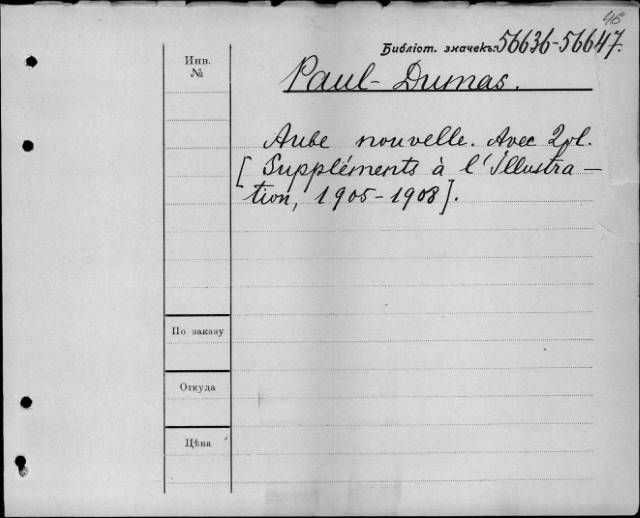 46
Библіот. значекъ 56636-56647.
Инв.
№
Paul-Dumas.
Aube nouvelle. Avec 2 pl.
[Suppléments à l'Illustra-
tion, 1905-1908].
По заказу
Откуда
Цѣна